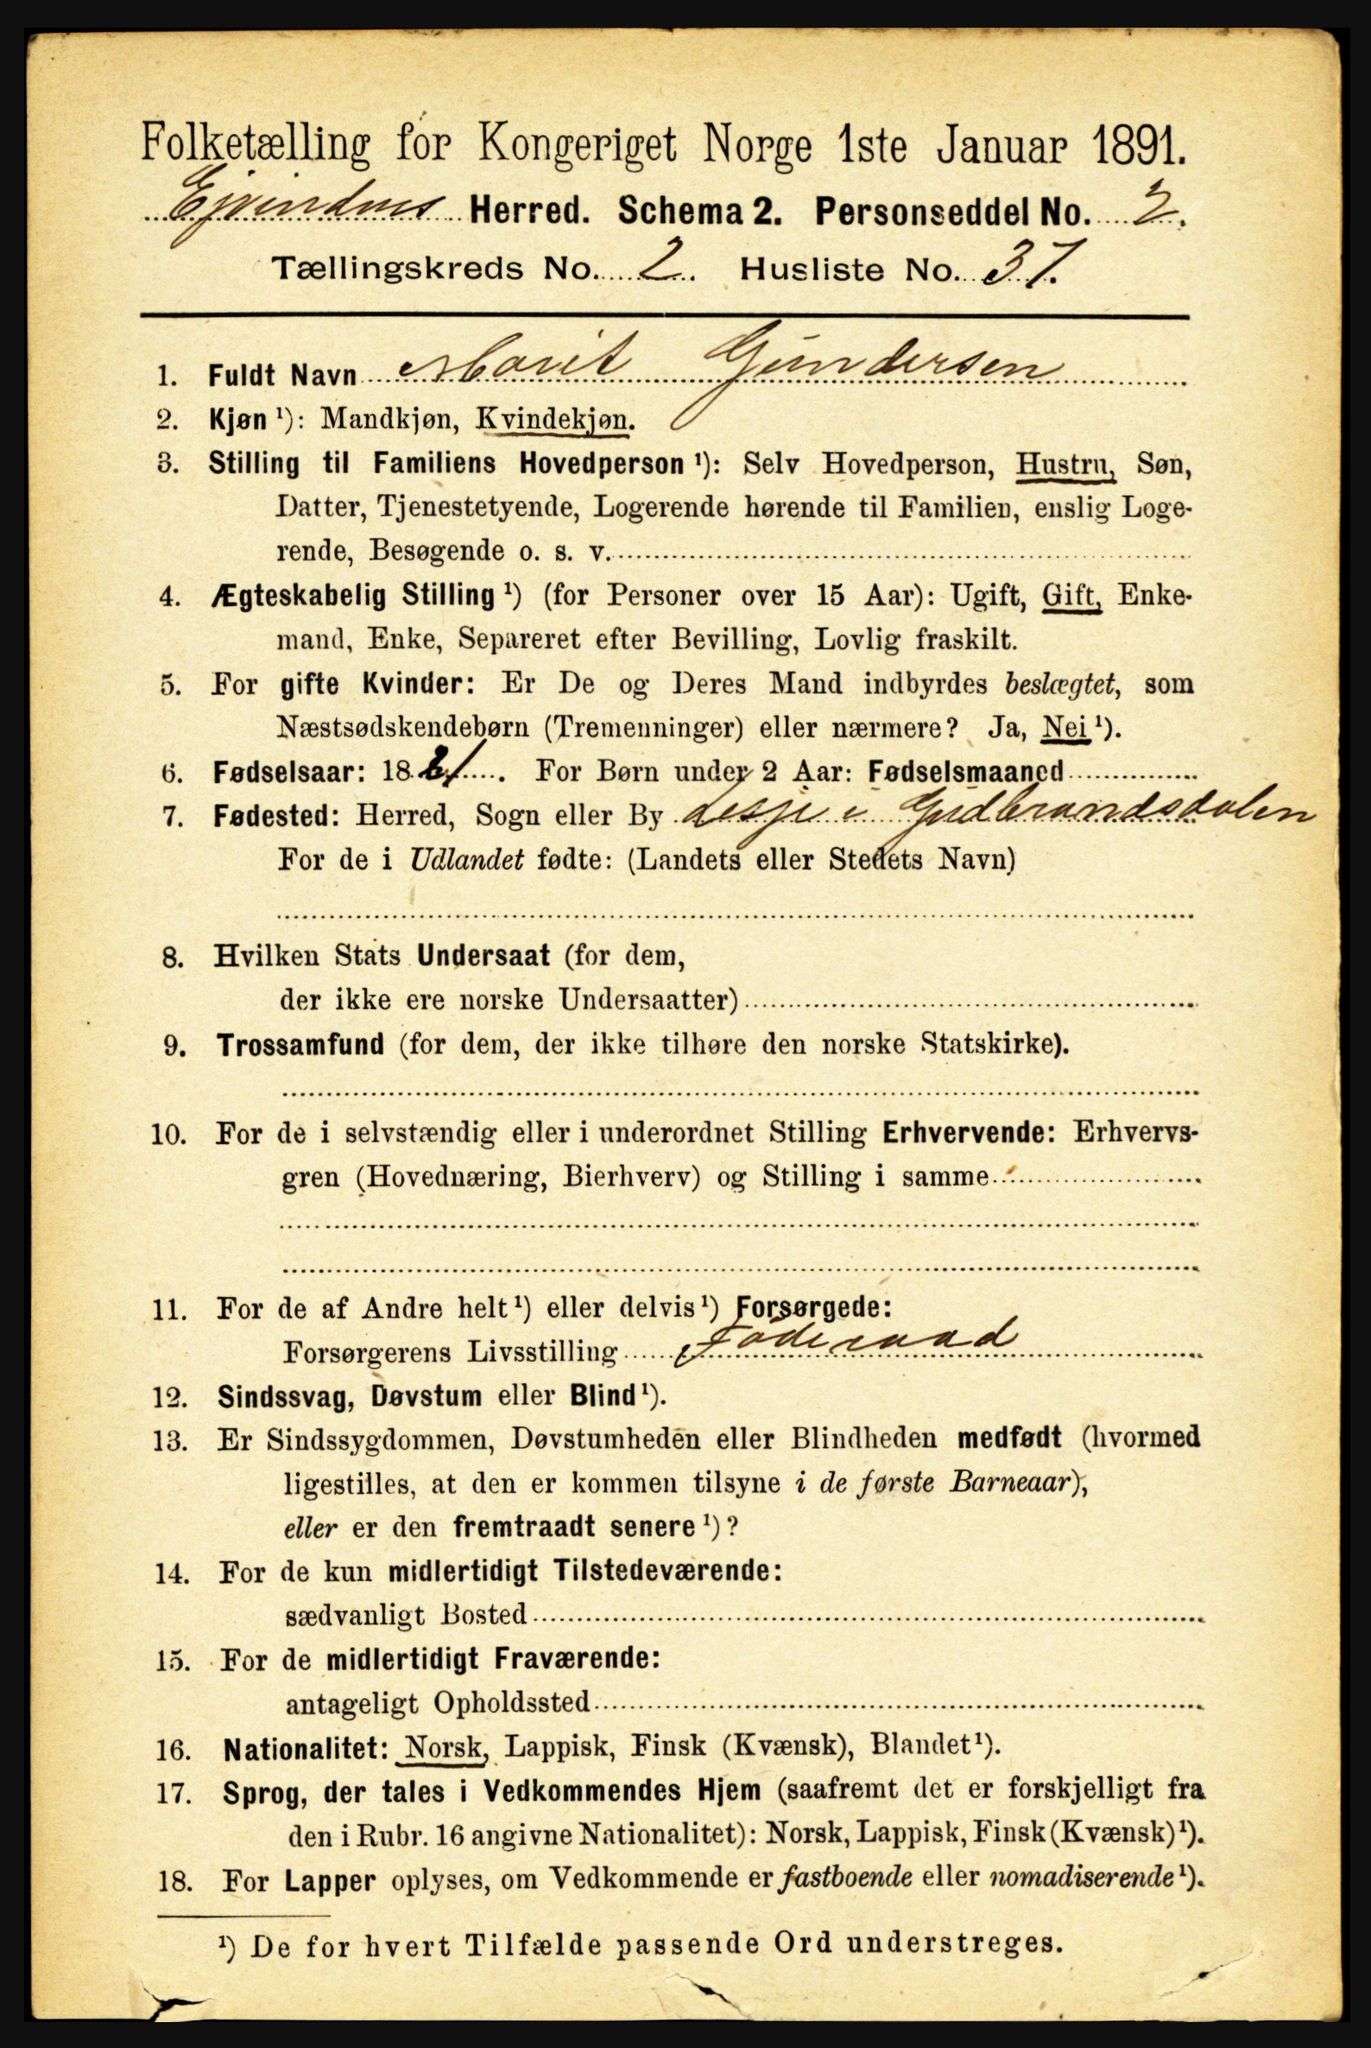 Folketælling for Kongeriget Norge 1ste Januar 1891.
Ejvindvus Herred. Schema 2. Personseddel No. 2.
Tællingskreds No. 2. Husliste No. 37.
1. Fuldt Navn Marit Gundersen
2. Kjøn ¹): Mandkjøn, Kvindekjøn.
3. Stilling til Familiens Hovedperson ¹): Selv Hovedperson, Hustru, Søn,
Datter, Tjenestetyende, Logerende hørende til Familien, enslig Loge-
rende, Besøgende o. s. v.
4. Ægteskabelig Stilling ¹) (for Personer over 15 Aar): Ugift, Gift, Enke-
mand, Enke, Separeret efter Bevilling, Lovlig fraskilt.
5. For gifte Kvinder: Er De og Deres Mand indbyrdes beslægtet, som
Næstsødskendebørn (Tremenninger) eller nærmere? Ja, Nei ¹).
6. Fødselsaar: 1821. For Børn under 2 Aar: Fødselsmaaned
7. Fødested: Herred, Sogn eller By Lesje i Gudbrandsdalen
For de i Udlandet fødte: (Landets eller Stedets Navn)
8. Hvilken Stats Undersaat (for dem,
der ikke ere norske Undersaatter)
9. Trossamfund (for dem, der ikke tilhøre den norske Statskirke).
10. For de i selvstændig eller i underordnet Stilling Erhvervende: Erhvervs-
gren (Hovednæring, Bierhverv) og Stilling i samme
11. For de af Andre helt ¹) eller delvis ¹) Forsørgede:
Forsørgerens Livsstilling Føderaad
12. Sindssvag, Døvstum eller Blind ¹).
13. Er Sindssygdommen, Døvstumheden eller Blindheden medfødt (hvormed
ligestilles, at den er kommen tilsyne i de første Barneaar),
eller er den fremtraadt senere ¹)?
14. For de kun midlertidigt Tilstedeværende:
sædvanligt Bosted
15. For de midlertidigt Fraværende:
antageligt Opholdssted
16. Nationalitet: Norsk, Lappisk, Finsk (Kvænsk), Blandet ¹).
17. Sprog, der tales i Vedkommendes Hjem (saafremt det er forskjelligt fra
den i Rubr. 16 angivne Nationalitet): Norsk, Lappisk, Finsk (Kvænsk) ¹).
18. For Lapper oplyses, om Vedkommende er fastboende eller nomadiserende ¹).
¹) De for hvert Tilfælde passende Ord understreges.